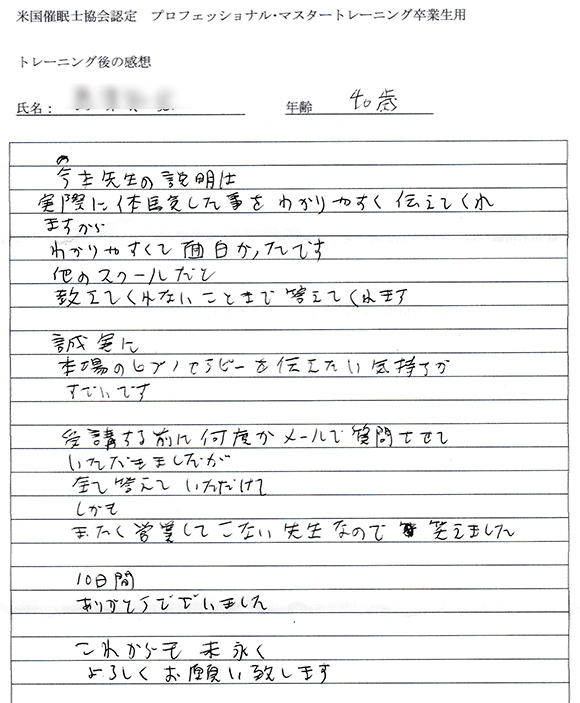 米国催眠士協会認定　プロフェッショナル・マスタートレーニング卒業生用
トレーニング後の感想
氏名：　年齢　40歳
今主先生の説明は
実際に体験した事を わかりやすく 伝えてくれ
ますから
わかりやすくて 面白かったです
他のスクールだと
教えてくれないことまで 答えてくれます
誠実に
本場のヒプノセラピーを伝えたい気持ちが
すごいです
受講する前に何度かメールで質問させて
いただきましたが
全て答えて いただけて
しかも
まったく営業してこない先生なので 笑えました
10日間
ありがとうございました
これからも 末永く
よろしくお願い致します